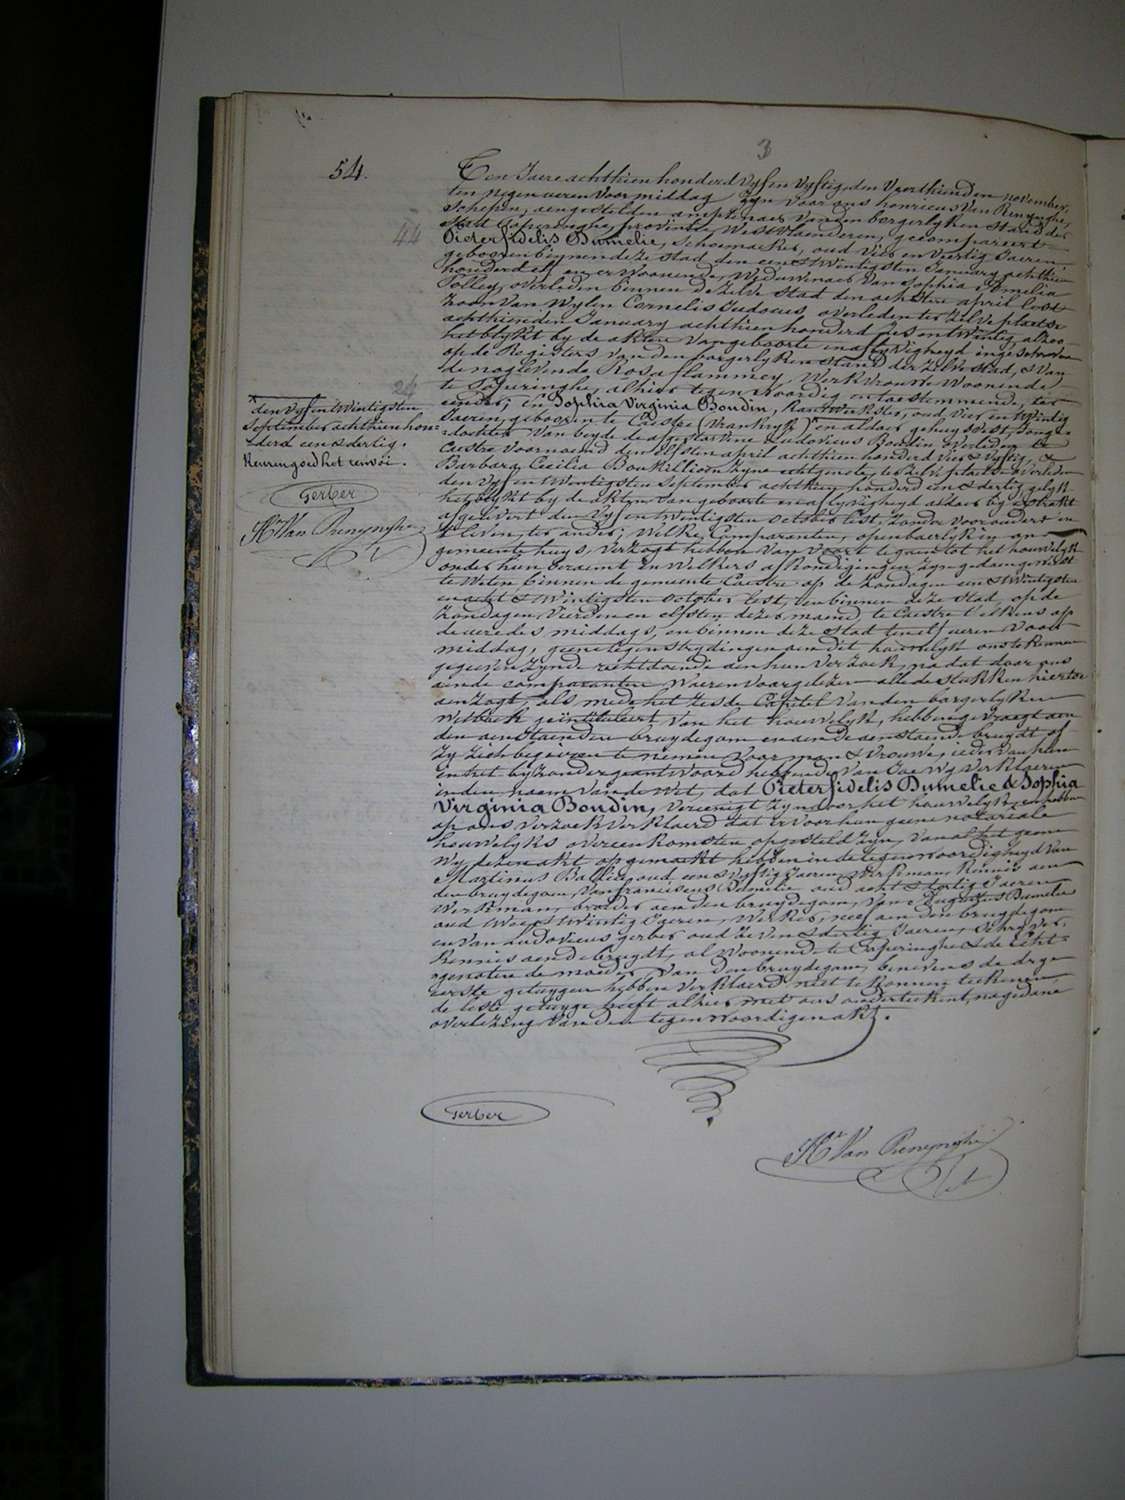 3
54.
Ten Jaere achthien honderd vyf en vyftig, den veerthienden november,
ten negen ueren voormiddag zyn voor ons henricus Van Renynghe,
schepen, aengestelden amptenaer van den borgerlyken stand der
stad Poperinghe, provintie West Vlaenderen, gecompareert
44
Pieter fidelis Dumelie, schoemaeker, oud vier en veertig Jaeren
gebooren binnen deze stad den een & twintigsten January achthien
honderd elf, en er woonende, Weduwenaer van Sophia Amelia
Tolley, overleden binnen dezelve stad den achtsten april lest
zoon van wylen Cornelis Judocus overleden ter zelve plaetse
achthienden January achthien honderd zes en twintig, alzoo
het blykt by de akten van geboorte en aflyvigheyd ingeschreven
op de Registers van den borgerlyken stand der zelve stad, & van
de nog levende Rosa flammey, Werkvrouw woonende
24
te Poperinghe, alhier tegenwoordig en toestemmende, ter
eender; en Sophia Virginia Boudin, kantwerkster, oud vier en twintig
Jaeren, gebooren te Caestre (Vrankryk) en aldaer gehuysvest, jonge
dochter van beyde de afgestorvene Ludovicus Boudin overleden te
Caestre voornoemd den elfsten april achthien honderd vier & vyftig, &
Barbara Cecilia Boukillioen zyne echtgenote, ter zelve plaetse overleden
den vyf en twintigsten September achthien honderd een & dertig, gelyk
het blykt by de akten van geboorte en aflyvigheyd aldaer by extrakt
afgelevert den vyf en twintigsten october lest, zonder voorouders in
t'leven, ter ander; Welke Comparanten, openbaerlyk in on
gemeente huys, verzogt hebben van voort te gaen tot het houwelyk
onder hun beraemt en welkers afkondigingen zyn gedaen geweest
te weten binnen de gemeente Caestre op de zondagen een & twintigsten
en acht & twintigsten october lest, en binnen deze stad, op de
zondagen, vierden en elfsten dezer maend, te Caestre telkens op
de uere des middags, en binnen deze stad ten elf ueren voor
middag, geene tegenstrydingen aen dit houwelyk ons te kennen
gegeven zynde rechtdoende aen hun verzoek, na dat door ons
aende comparanten waeren voorgelezen alle de stukken hiertoe
aenzogt, als mede het zesde Capitel van den borgerlyken
Wetboek geintituleert van het houwelyk, hebben gevraegt aen
den aenstaenden bruydegom en aen de aenstaende bruydt of
zy zich begeeren te nemen voor man & vrouwe, ieder van hun
in het byzonder geantwoord hebbende van Jae wy verklaeren
in den naem van de Wet, dat Pieter fidelis Dumelie & Sophia
Virginia Boudin, vereenigt zyn door het houwelyk, en hebben
op ons verzoek verklaerd dat er voor hun geene notariale
houwelyks overeenkomsten opgesteld zyn, van al het geene
wy dezen akt opgemaekt hebben in de tegenwoordigheyd van
Martinus Baillie, oud een & vyftig Jaeren, Werkman, kennis aen
den bruydegom, van franciscus Dumelie oud acht & dertig Jaeren
Werkman, broeder aen den bruydegom, van Augustus Dumelie
oud twee & twintig Jaeren, Werker, neef aen den bruydegom
en van Ludovicus gerber oud zeven & dertig Jaeren, schryver,
kennis aen de bruydt, al woonende te Poperinghe & de echt-
genoten de moeder van den bruydegom, benevens de drye
eerste getuygen hebben verklaerd niet te konnen teekenen,
de leste getuyge heeft alhier met ons onderteekent, na gedane
overlezing van den tegenwoordigen akt.
den vyf en twintigsten
September achthien hon-
derd een & dertig.
Keuren goed het renvoi.
Gerber
Hri Van Renynghe
Gerber
Hri Van Renynghe